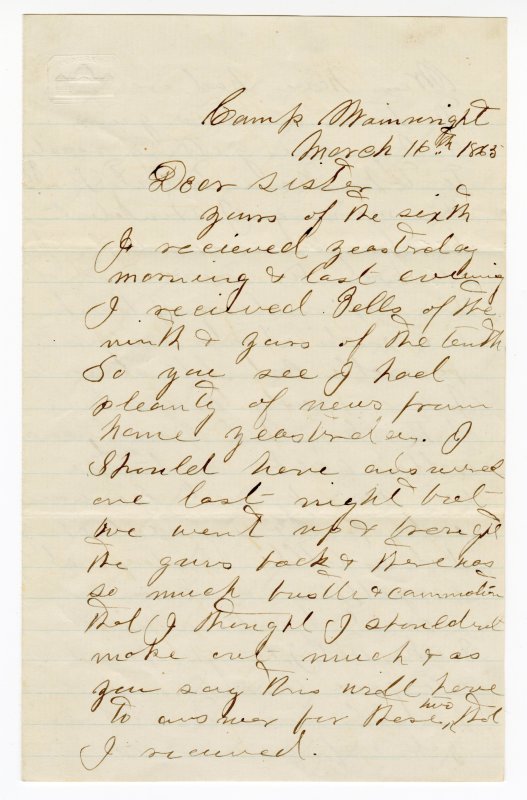 Camp Wainwright
March 16th 1865
Dear Sister
yours of the sixth
I recieved yeasterday
morning & last evening
I recieved Tells of the
ninth & yours of the tenth
So you see I had
pleanty of news from
home yeasterday. I
Should have answered
one last night but
we went up & brought
the guns back & there was
so much bustle & commotion
that I thought I should not
make out much & as
you say this will have
to answer for these two that
I recieved.